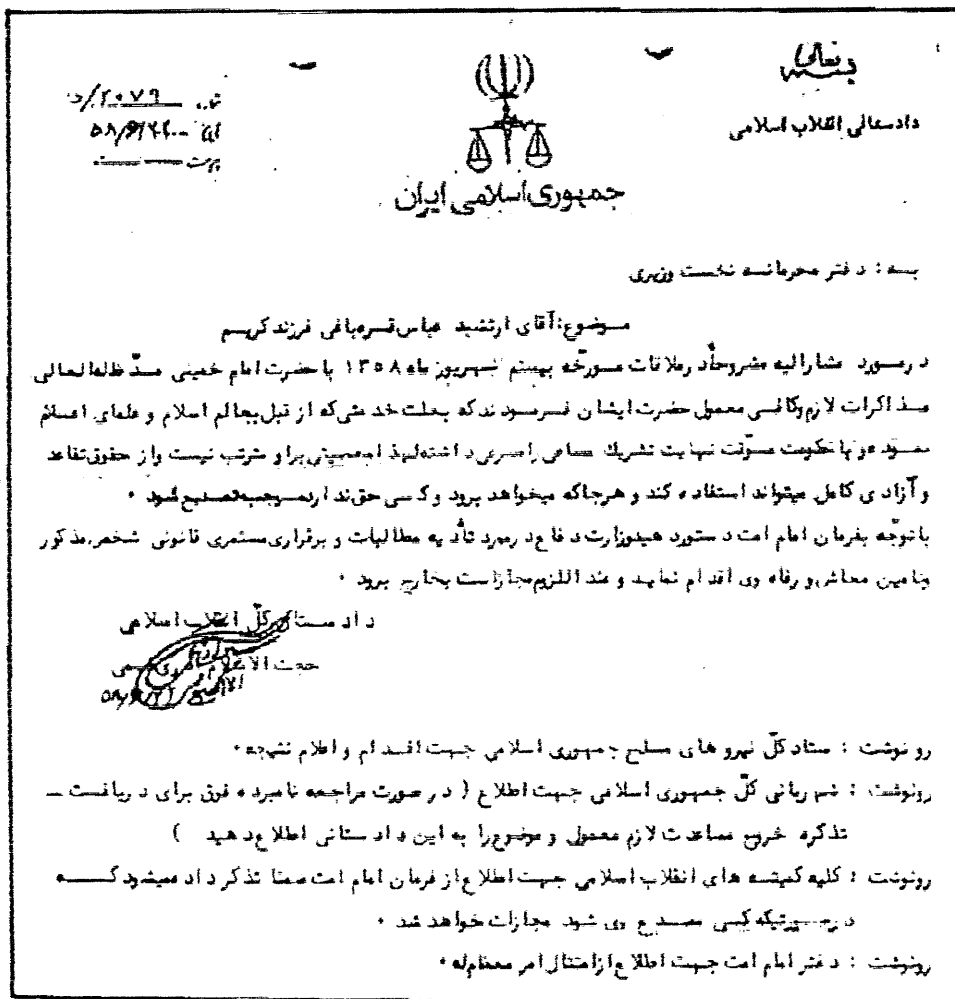 بسمه تعالی
دادستانی انقلاب اسلامی
جمهوری اسلامی ایران
شماره ۲۰۷۹/د
تاریخ
پیوست
بسه : دفتر محرمانسه نخست وزیری
موضوع: آقای ارتشبد عباس قره‌باغی فرزند کریم
در مورد مشارالیه مشروحاً در ملاقات مورخه بیستم شهریور ماه ۱۳۵۸ با حضرت امام خمینی مدّ ظله‌العالی
مذاکرات لازم و کافی معمول حضرت ایشان فرمودند که بعلت خدمتی که از قبل بعالم اسلام و علمای اعلام
نموده و با حکومت موقت نهایت تشریک مساعی را مرعی داشته لهذا معصیتی بر او مترتب نیست و از حقوق تقاعد
و آزادی کامل میتواند استفاده کند و هرجا که میخواهد برود و کسی حق ندارد موجب تصدیع شود .
باتوجّه بفرمان امام امت دستور میدوزارت دفاع در مورد تأدیه مطالبات و برقراری مستمری قانونی شخص مذکور
وتامین معاش و رفاه وی اقدام نماید و عند اللزوم مجاز است بخارج برود .
دادستان کلّ انقلاب اسلامی
حجت الاسلام
رونوشت : ستاد کلّ نیروهای مسلح جمهوری اسلامی جهت اقدام و اعلام نتیجه .
رونوشت : شهربانی کلّ جمهوری اسلامی جهت اطلاع ( در صورت مراجعه نامبرده فوق برای دریافت ــ
تذکره خروج مساعدت لازم معمول و موضوع را به این دادستانی اطلاع دهید )
رونوشت : کلیه کمیته های انقلاب اسلامی جهت اطلاع از فرمان امام امت ضمنا تذکر داده میشود کــه
در صورتیکه کسی مصدع وی شود مجازات خواهد شد .
رونوشت : دفتر امام امت جهت اطلاع از امتثال امر معظم‌له .